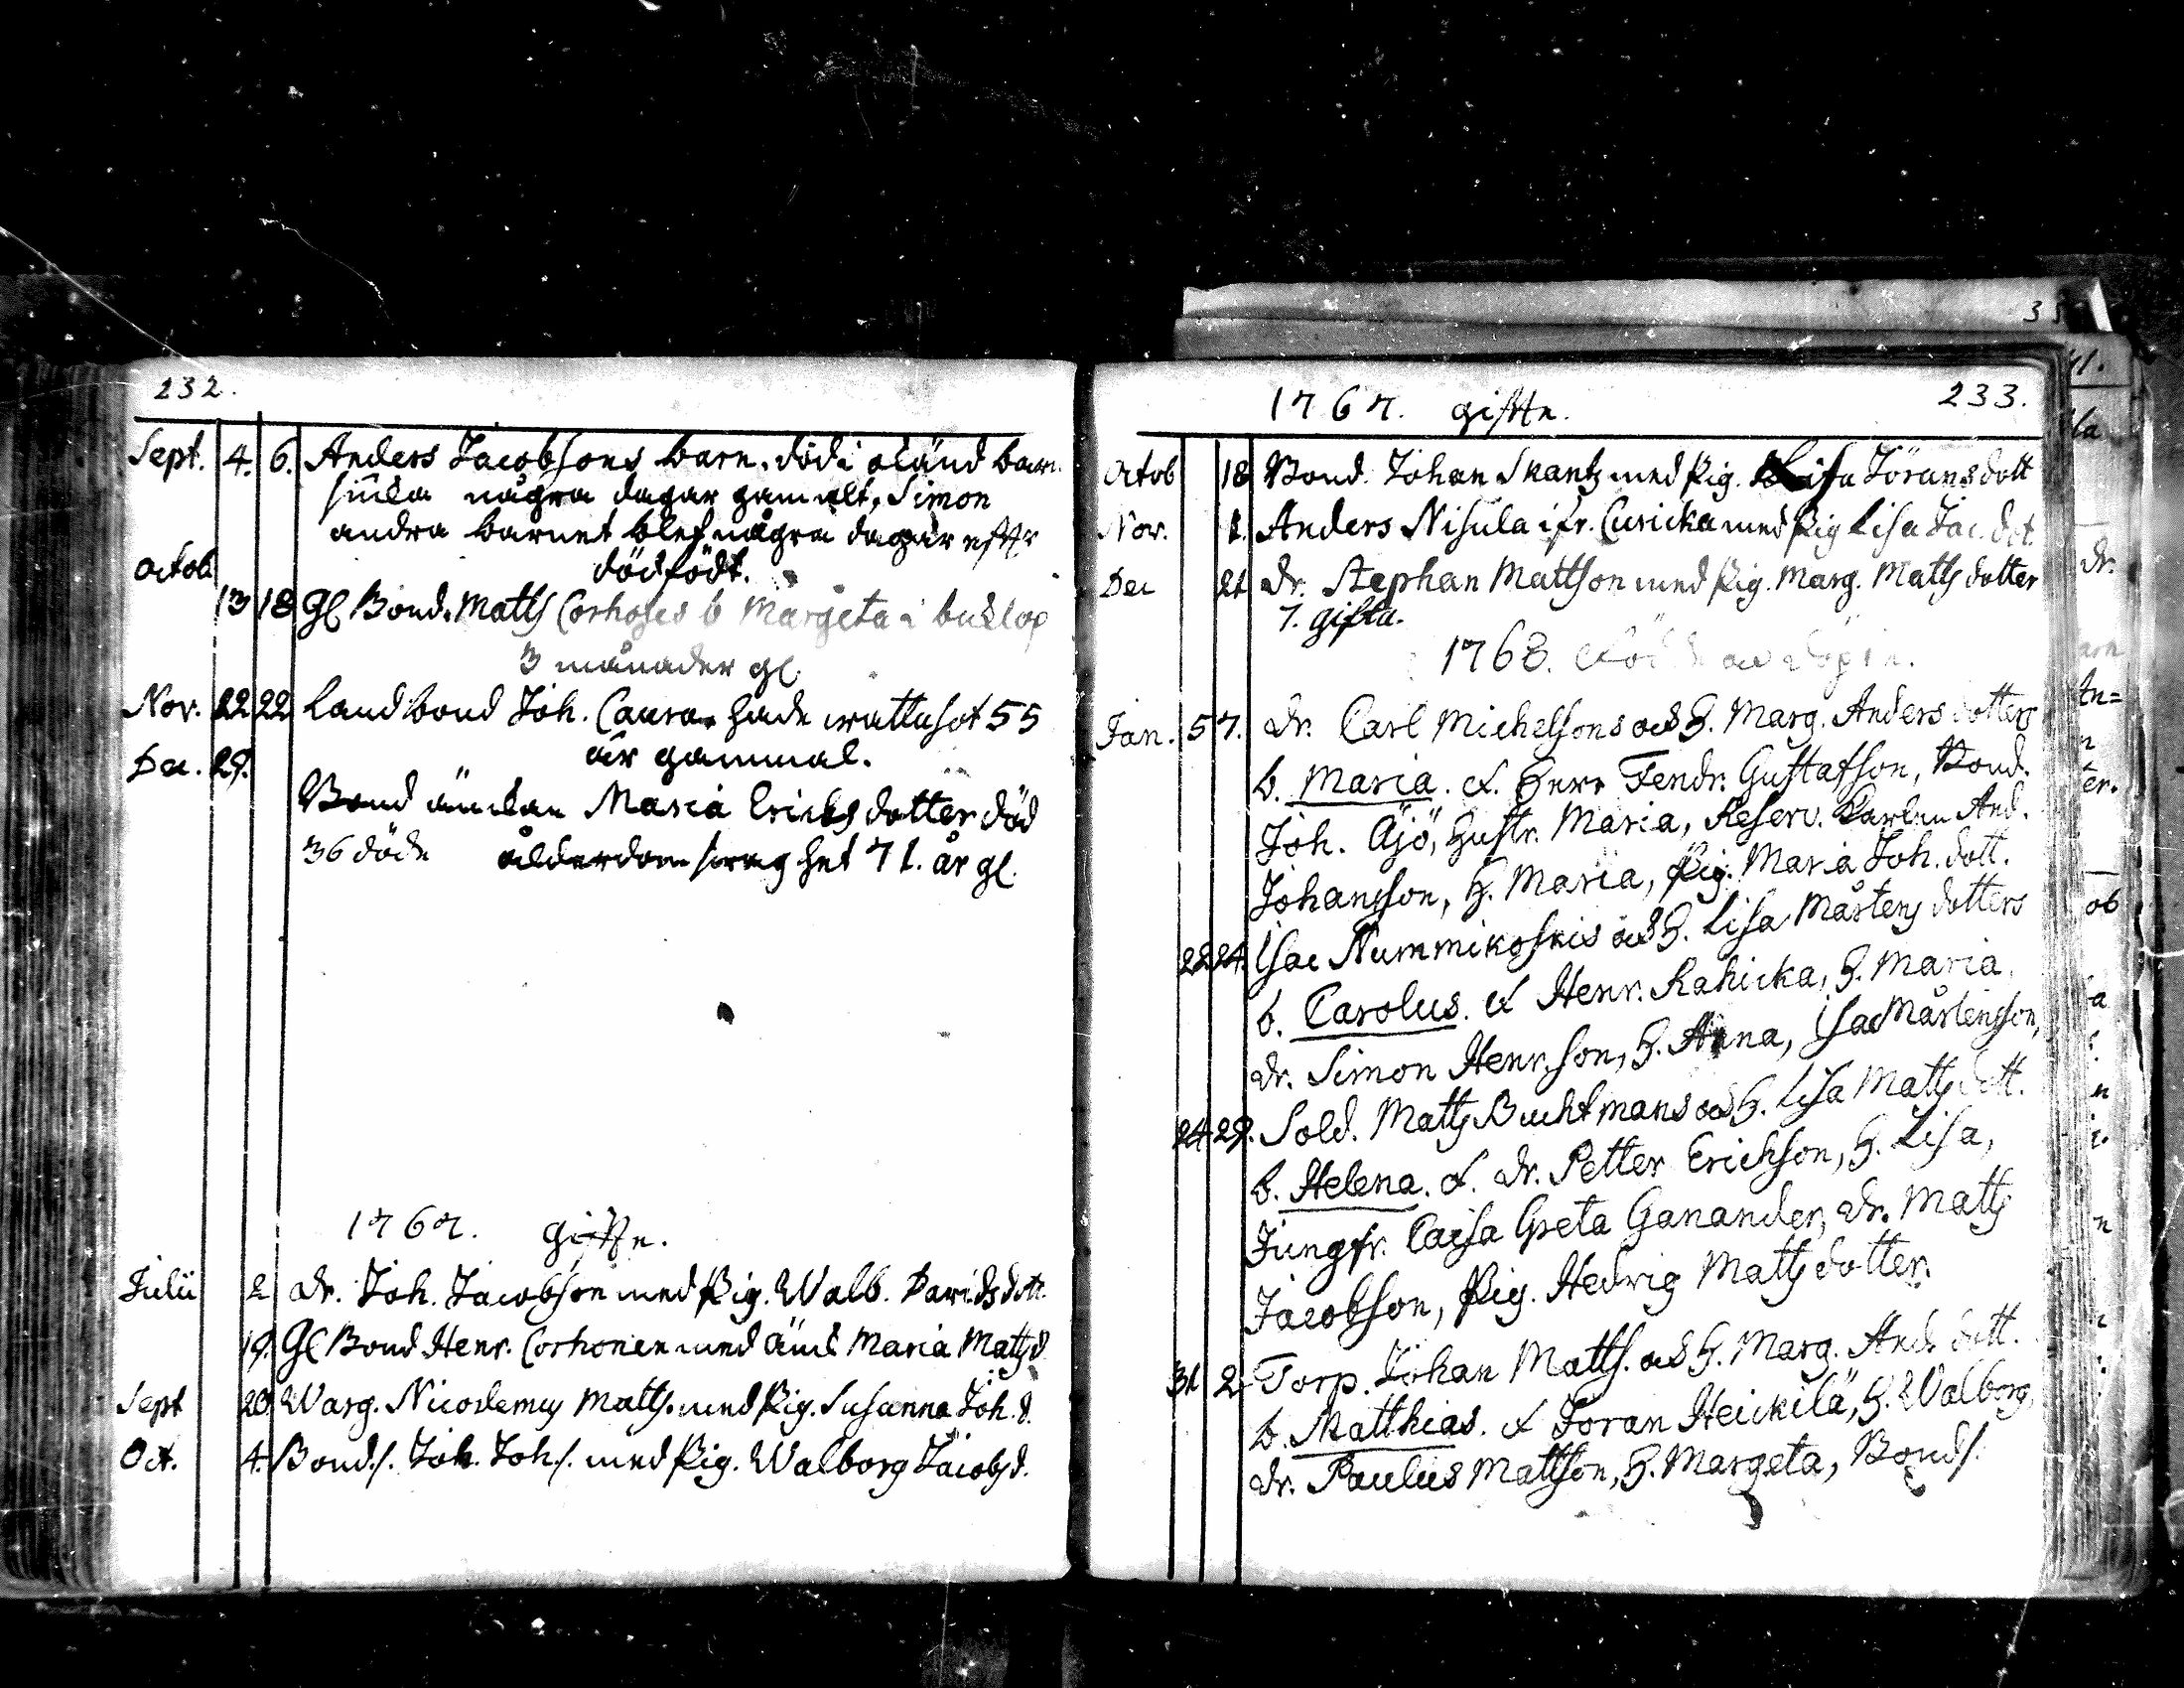 232.
Sept. 4. 6. Anders Jacobsons barn. död i okänd barn
siuka några dagar gammalt, Simon
andra barnet blef några dagar efter
dödfödt.
Octob.
13 18 Gl Bond. Matts Corhoses b Margeta i buklop
3 månader gl.
Nov. 22 22 Landbond Joh. Caura hade wattusot 55
år gammal.
Dec. 29.
Bond änkan Maria Ericks dotter död
36 döde ålderdom swaghet 71. år gl.
1767. giffte.
Julii 2 dr. Joh. Jacobson med Pig. Walb. Davidsdott.
19. Gl Bond Henr. Corhonen med Änk Maria Matsd.
Sept 20 Warg. Nicodemus Matts. med Pig. Susanna Joh. d.
Oct. 4. Bond/. Joh. Joh/. med Pig. Walborg Jacobsd.
233.
1767. giffte.
Octob 18 Bond. Johan Skantz med Pig. Lisa Jöransdott
Nov. 1. Anders Nisula ifr. Curicka med Pig Lisa Jac. dot
Dec 21 dr. Stephan Mattson med Pig. Marg. Matts dotter
7. gifta.
1768.
Jan. 5 7. dr. Carl Michelsons och H. Marg. Anders dotters
b. Maria. f. Herr Fendr. Gustafson, Bond.
Joh. Äjö, Hustr. Maria, Reserv. Karlen And.
Johansson, H. Maria, Pig. Maria Joh. dott.
22 24. Isac Nummikoskis och H. Lisa Mårtens dotters
b. Carolus. f Henr. Rahicka, H. Maria,
dr. Simon Henr.son, H. Anna, Isac Mårtensson,
24 29. Sold. Matts Buchtmans och H. Lisa Matts dott.
b. Helena. f. dr. Petter Erickson, H. Lisa,
Jungfr. Cajsa Greta Ganander, dr. Matts
Jacobson, Pig. Hedvig Matts dotter.
31 2. Torp. Johan Matts. och H. Marg. And. dott.
b. Matthias. f Joran Heickilä, H. Walborg,
dr. Paulus Mattson, H. Margeta, Bond/.